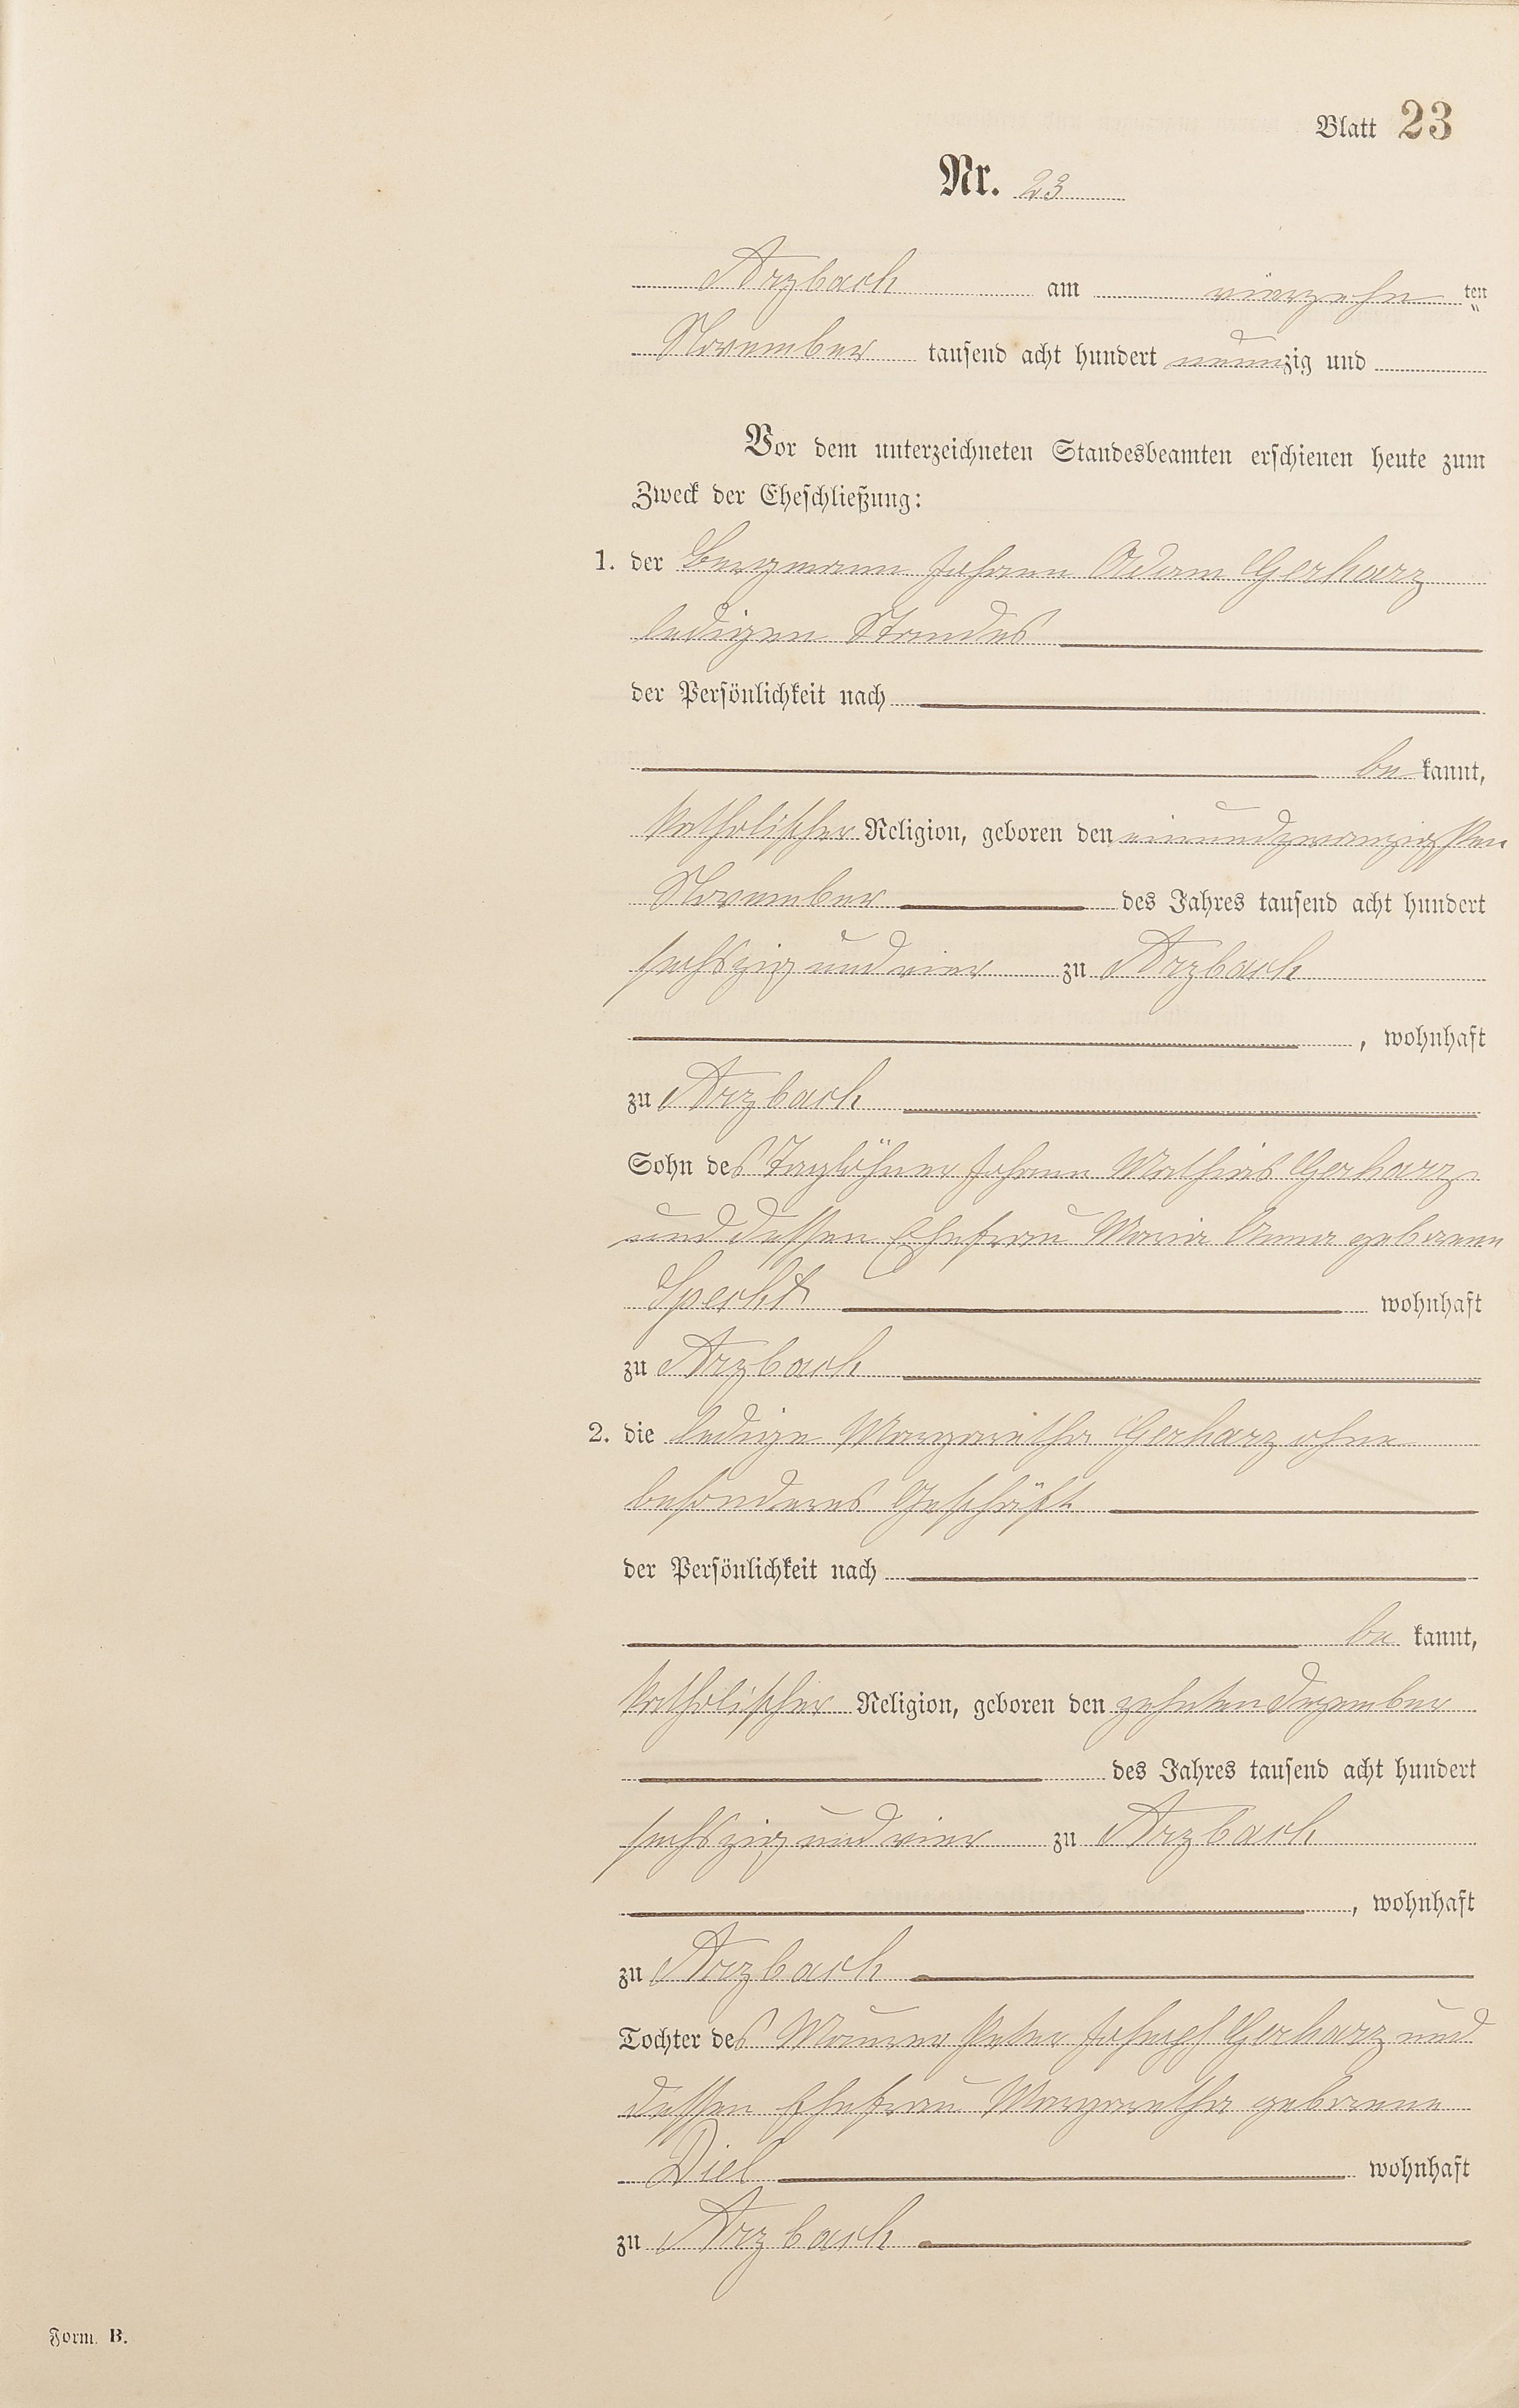 Blatt 23
Nr. 23
Arzbach am vierzehn ten
November tausend acht hundert neunzig und
Vor dem unterzeichneten Standesbeamten erschienen heute zum
Zweck der Eheschließung:
1. der Bergmann Johann Adam Gerharz
ledigen Standes
der Persönlichkeit nach
be kannt,
katholischer Religion, geboren den einundzwanzigsten
November des Jahres tausend acht hundert
sechszig und vier zu Arzbach
, wohnhaft
zu Arzbach
Sohn des Taglöhner Johann Mathias Gerharz
und dessen Ehefrau Maria Anna geborene
Specht wohnhaft
zu Arzbach
2. die ledige Margaretha Gerharz ohne
besonderes Geschäft
der Persönlichkeit nach
be kannt,
katholischer Religion, geboren den zehnten Dezember
des Jahres tausend acht hundert
sechszig und vier zu Arzbach
, wohnhaft
zu Arzbach
Tochter des Maurer Peter Joseph Gerharz und
dessen Ehefrau Margaretha geborene
Diel wohnhaft
zu Arzbach
Form. B.